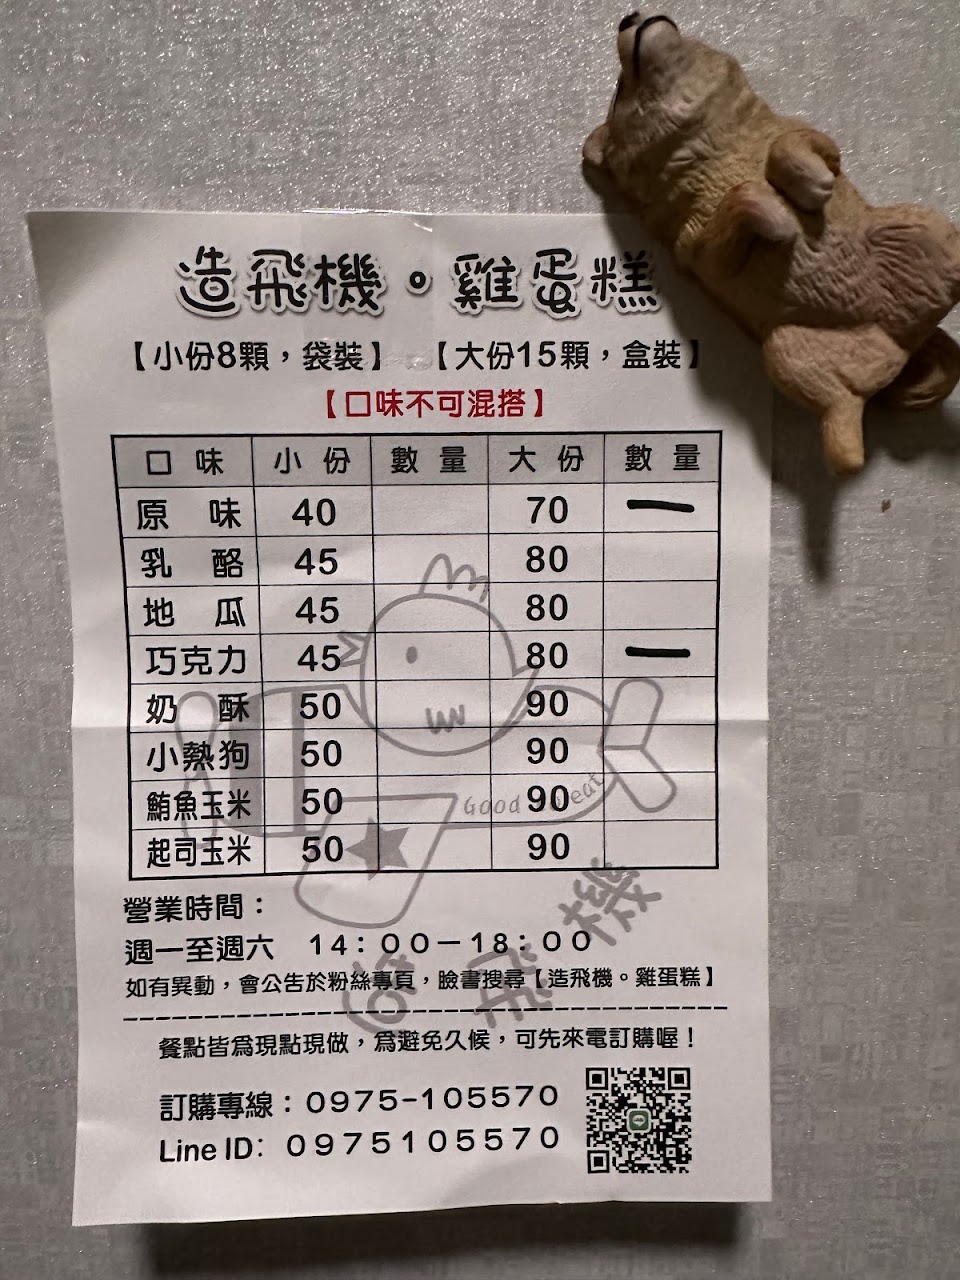 造飛機。雞蛋糕
【小份8顆，袋裝】 【大份15顆，盒裝】
【口味不可混搭】
口味 小份 數量 大份 數量
原味 40 70 一
乳酪 45 80
地瓜 45 80
巧克力 45 80 一
奶酥 50 90
小熱狗 50 90
鮪魚玉米 50 90
起司玉米 50 90
Good eat
造飛機
營業時間：
週一至週六 14：00－18：00
如有異動，會公告於粉絲專頁，臉書搜尋【造飛機。雞蛋糕】
餐點皆為現點現做，為避免久候，可先來電訂購喔！
訂購專線：0975-105570
Line ID: 0975105570